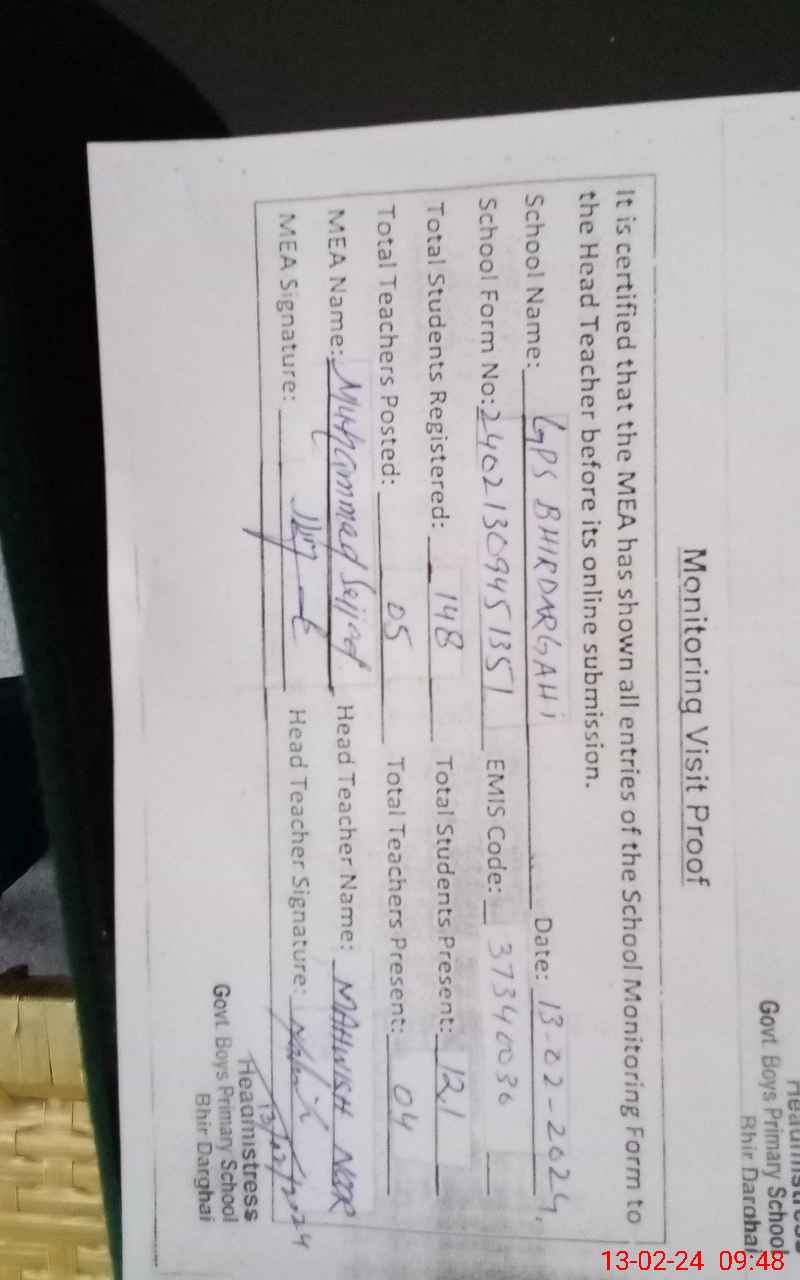 Headmistress
Govt. Boys Primary School
Bhir Darghai
Monitoring Visit Proof
It is certified that the MEA has shown all entries of the School Monitoring Form to
the Head Teacher before its online submission.
School Name: GPS BHIRDARGAHi Date: 13-02-2024.
School Form No: 24021309451351 EMIS Code: 37340036
Total Students Registered: 148 Total Students Present: 121
Total Teachers Posted: 05 Total Teachers Present: 04
MEA Name: Muhammad Sajjad Head Teacher Name: MAHWISH NOOR
MEA Signature: Head Teacher Signature:
13/02/2024
Headmistress
Govt. Boys Primary School
Bhir Darghai
13-02-24 09:48